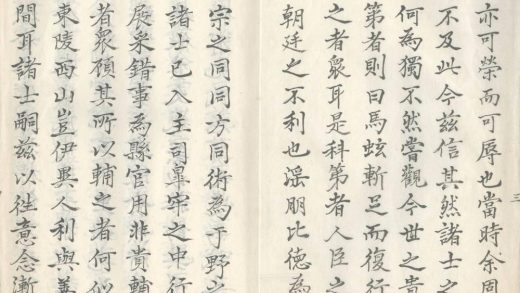 亦可榮而可辱也當時余周
不及此今茲信其然諸士之
何為獨不然嘗觀今世之貴
第者則曰馬蚿斬足而復行
之者衆耳是科第者人臣之
朝廷之不利也淫朋比德為
宗之同同方同術為于野之
諸士已入主司皐牢之中行
展采錯事為縣官用非貴輔
者衆顧其所以輔之者何似
東陵西山豈伊異人利與善
間耳諸士嗣茲以往意念漸
三